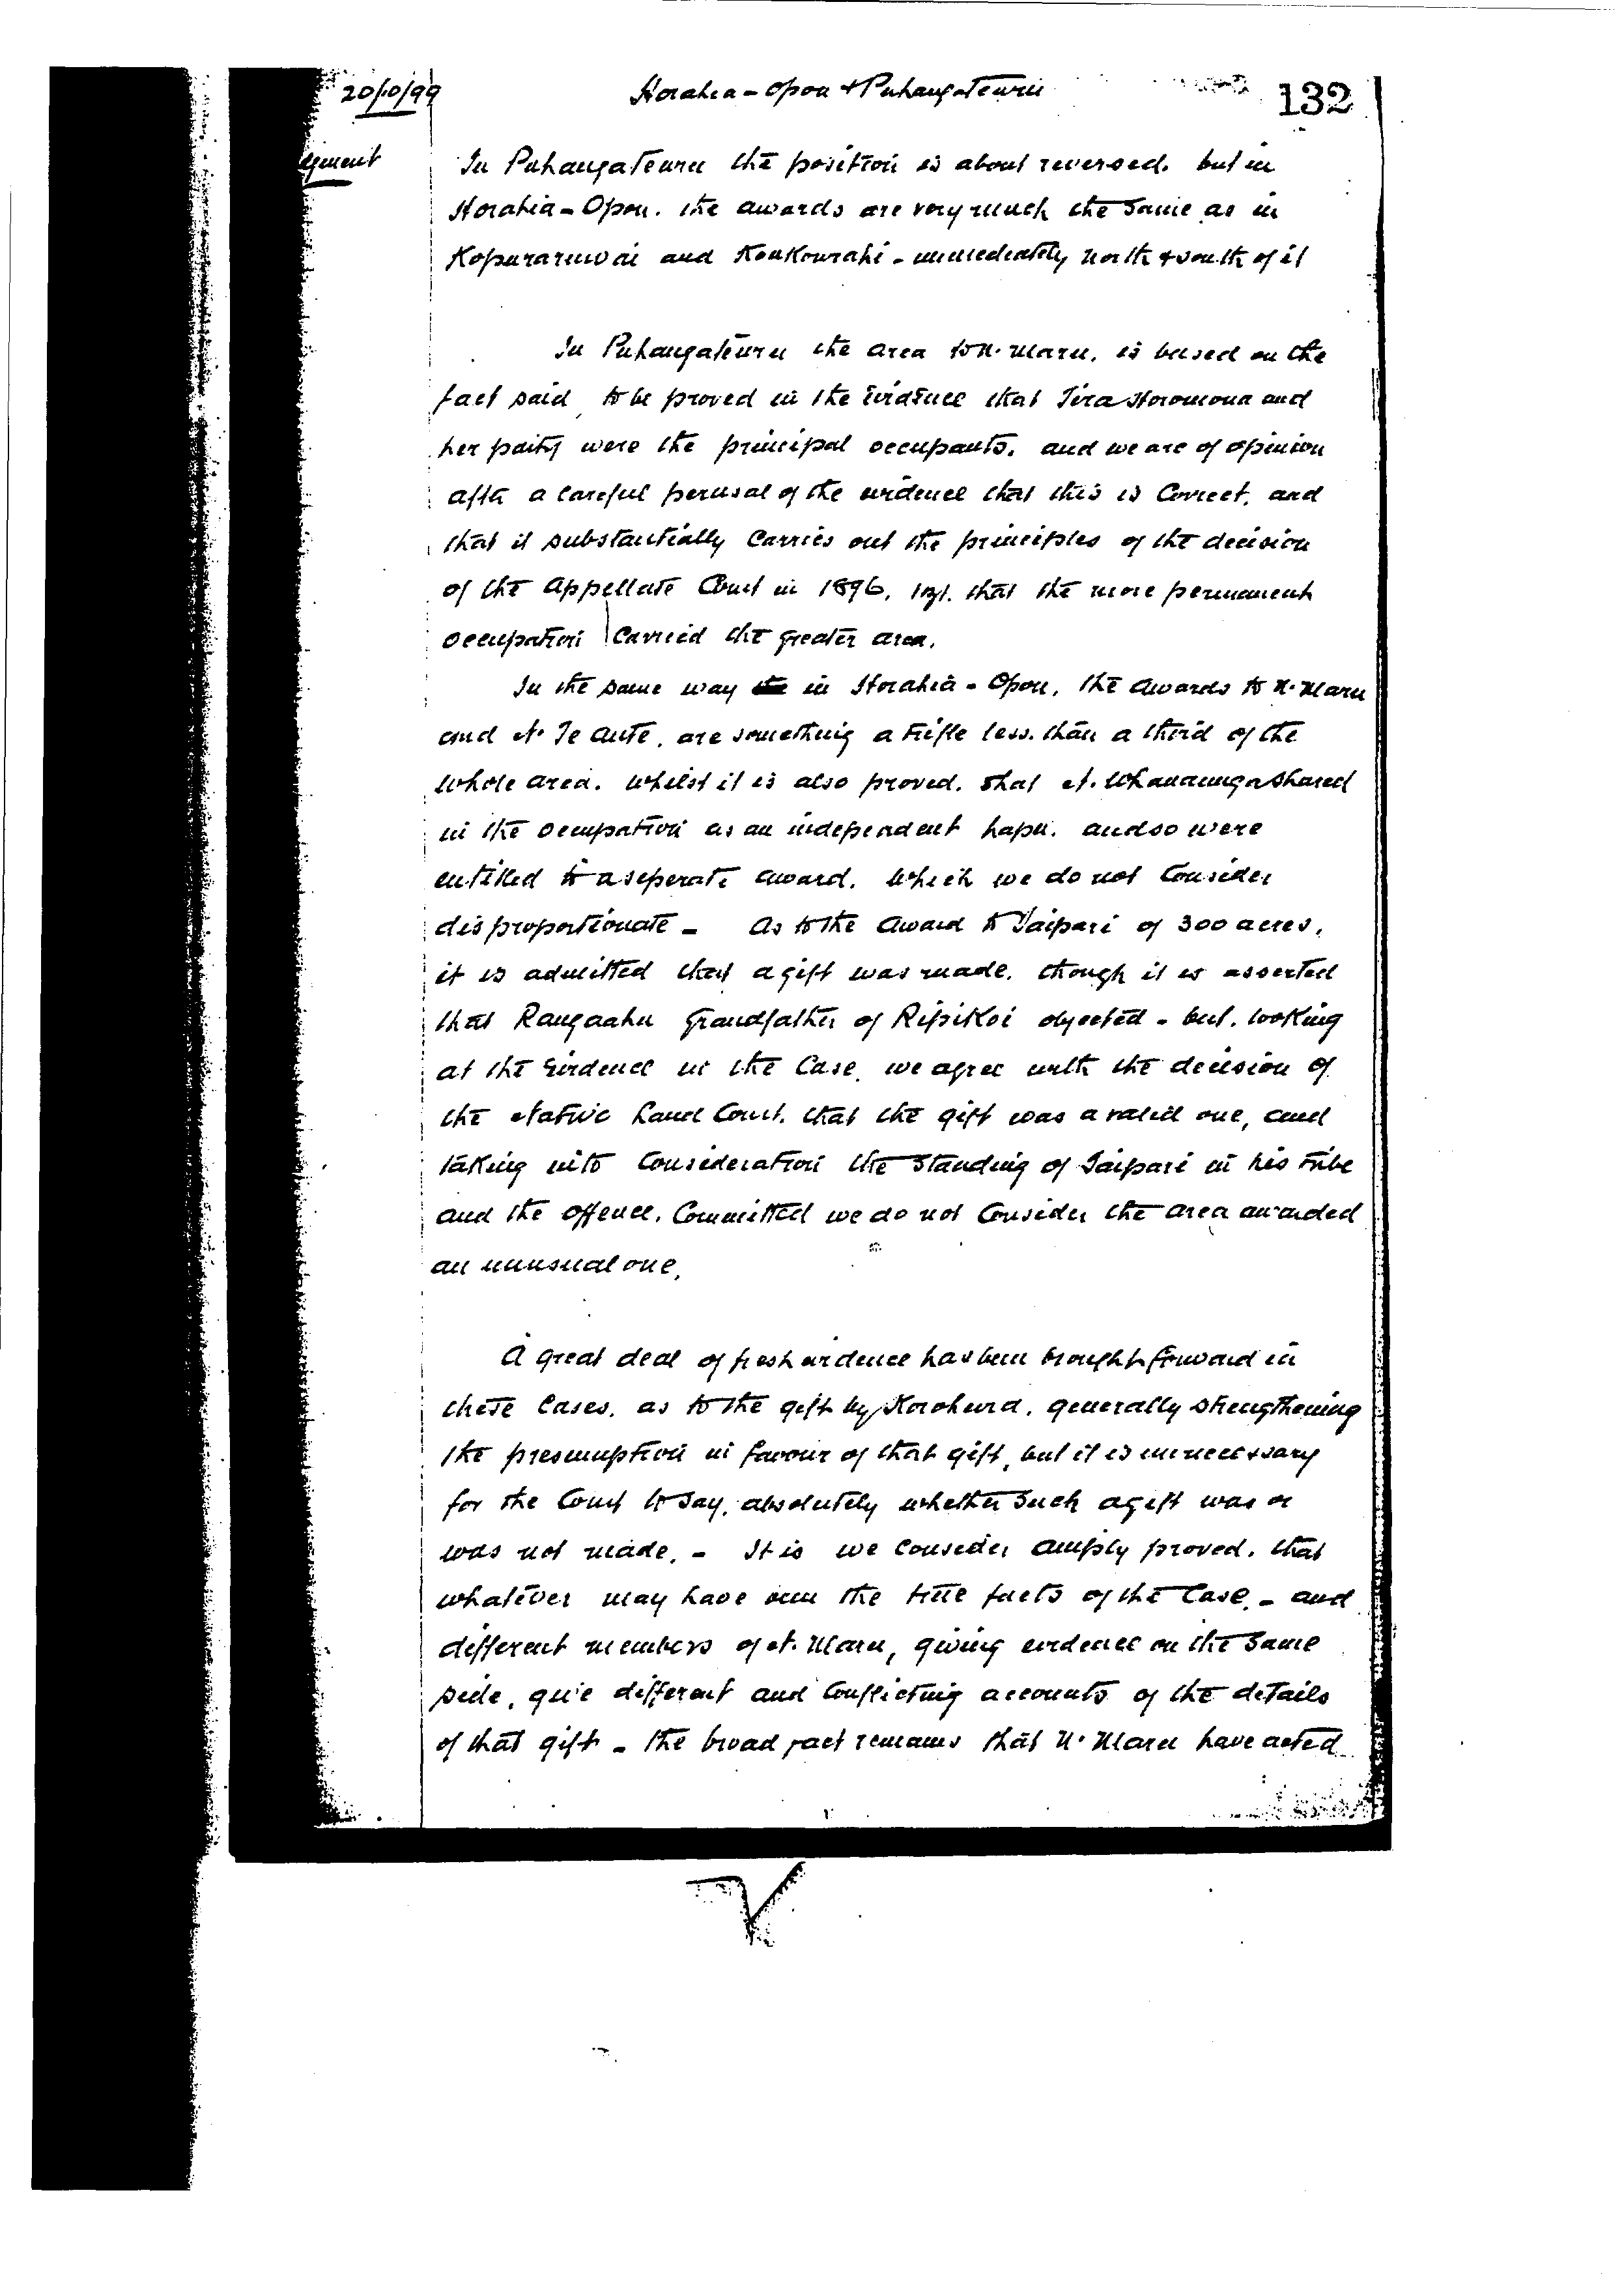 20/10/99
Horahia-Opou & Puhangateuru
132
gment
In Puhangateuru the position is about reversed. but in
Horahia-Opou. the awards are very much the same as in
Kopuraruwai and Koukourahi - immediately north & south of it
In Puhangateuru the area to N. Maru. is based on the
fact said to be proved in the Evidence that Tira Horomona and
her party were the principal occupants. and we are of opinion
after a careful perusal of the evidence that this is Correct. and
that it substantially Carries out the principles of the decision
of the Appellate Court in 1896. viz. that the more permanent
occupation Carried the greater area.
In the same way in Horahia-Opou, the awards to N. Maru
and N. Te Aute. are something a trifle less. than a third of the
whole area. Whilst it is also proved. that N. Whanaunga shared
in the occupation as an independent hapu. and so were
entitled to a seperate award. which we do not Consider
disproportionate - As to the Award to Taipari of 300 acres,
it is admitted that a gift was made. though it is asserted
that Rangaahu Grandfather of Ripikoi objected - but. looking
at the Evidence in the Case. we agree with the decision of
the Native Land Court. that the gift was a valid one, and
taking into Consideration the standing of Taipari in his tribe
and the offence. Committed we do not Consider the area awarded
an unusual one.
A great deal of fresh evidence has been brought forward in
these Cases. as to the gift by Korohura. generally strengthening
the presumption in favour of that gift, but it is unnecessary
for the Court to say. absolutely whether such a gift was or
was not made. - It is we consider amply proved. that
whatever may have been the true facts of the Case. - and
different members of N. Maru, giving evidence on the same
side, give different and Conflicting accounts of the details
of that gift - the broad fact remains that N. Maru have acted